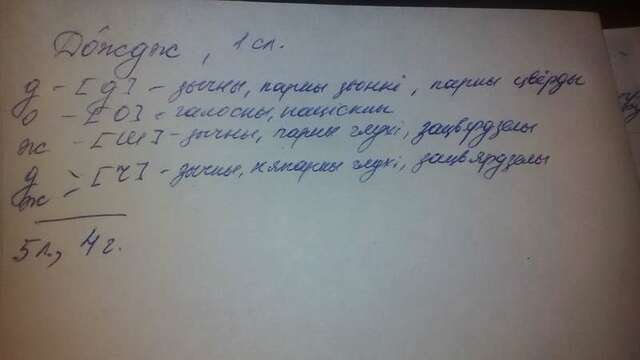 До́ждж, 1 сл.
д – [д] – зычны, парны звонкі, парны цвёрды
о – [о] – галосны, націскны
ж – [ш] – зычны, парны глухі, зацвярдзелы
д
ж = [ч] – зычны, няпарны глухі, зацвярдзелы
5 л., 4 г.